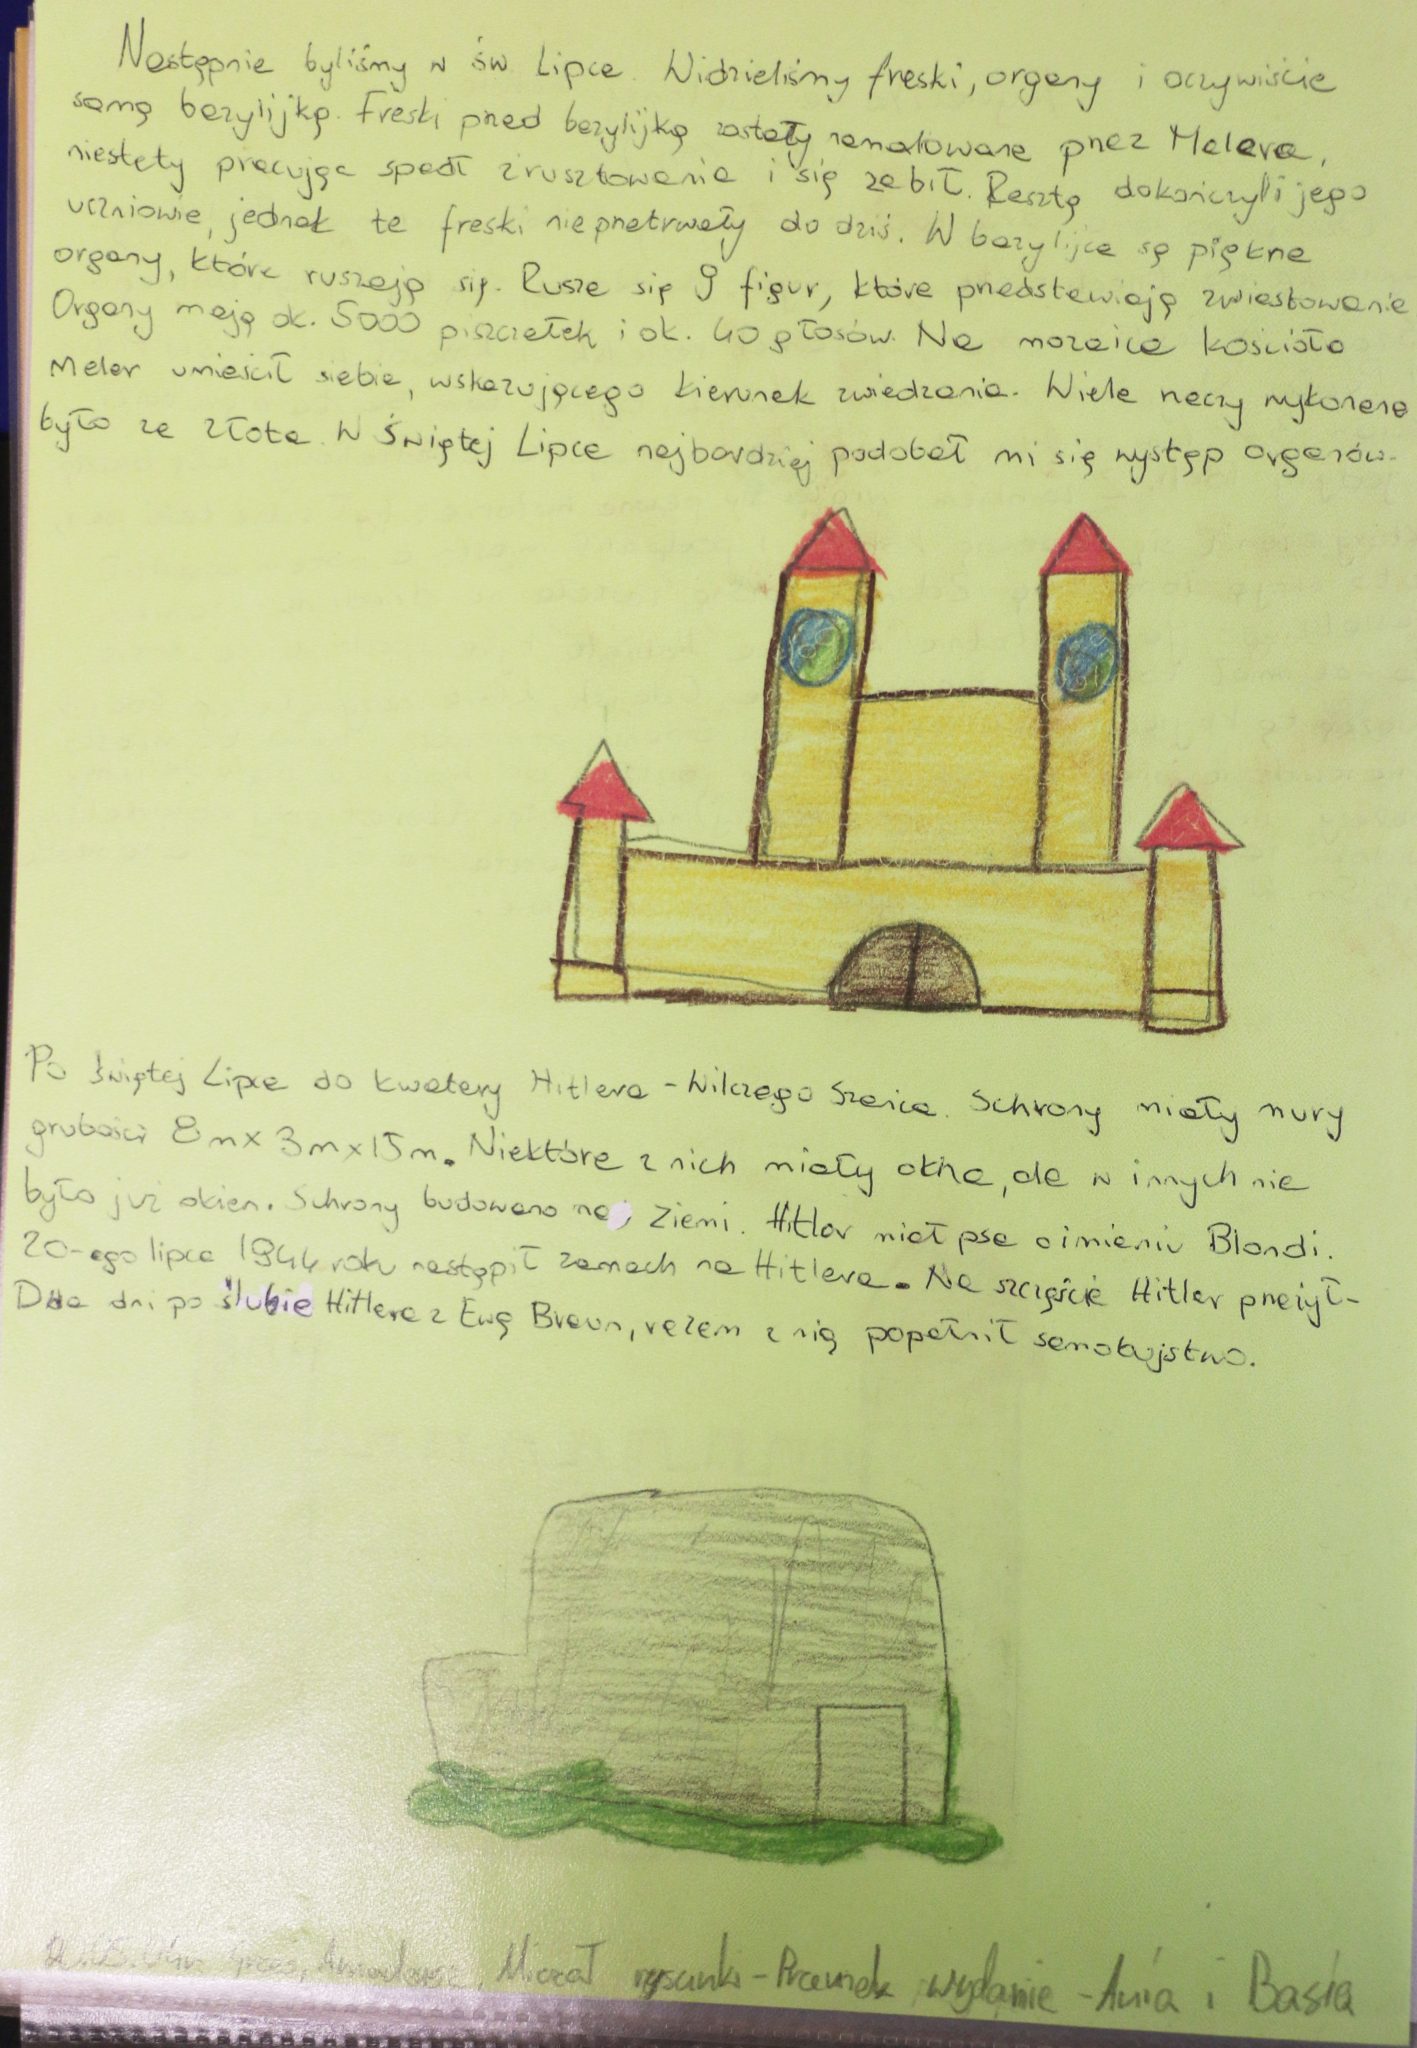 Następnie byliśmy w św. Lipce. Widzieliśmy freski, organy i oczywiście
samą bazylijkę. Freski pned bazylijką zostały namalowane pnez Melera,
niestety pracując spadł z rusztowania i się zabił. Resztę dokończyli jego
uczniowie, jednak te freski niepnetrwały do dziś. W bazylijce są piękne
organy, które ruszają się. Rusza się 9 figur, które pnedstawiają zwiastowanie
Organy mają ok. 5000 piszczałek i ok. 40 głosów. Na mozaice kościoła
Meler umieścił siebie, wskazującego kierunek zwiedzania. Wiele neczy wykonane
było ze złota. W Świętej Lipce najbardziej podobał mi się występ organów.
Po świętej Lipce do kwatery Hitlera - Wilczego Szańca. Schrony miały mury
grubości 8m x 3m x 15m. Niektóre z nich miały okna, ale w innych nie
było już okien. Schrony budowano na Ziemi. Hitler miał psa o imieniu Blondi.
20-ego lipca 1944 roku nastąpił zamach na Hitlera. Na szczęście Hitler pneżył-
Dwa dni po ślubie Hitlera z Ewą Braun, razem z nią popełnił samobójstwo.
Michał rysunki - Przemek wydanie - Ania i Basia